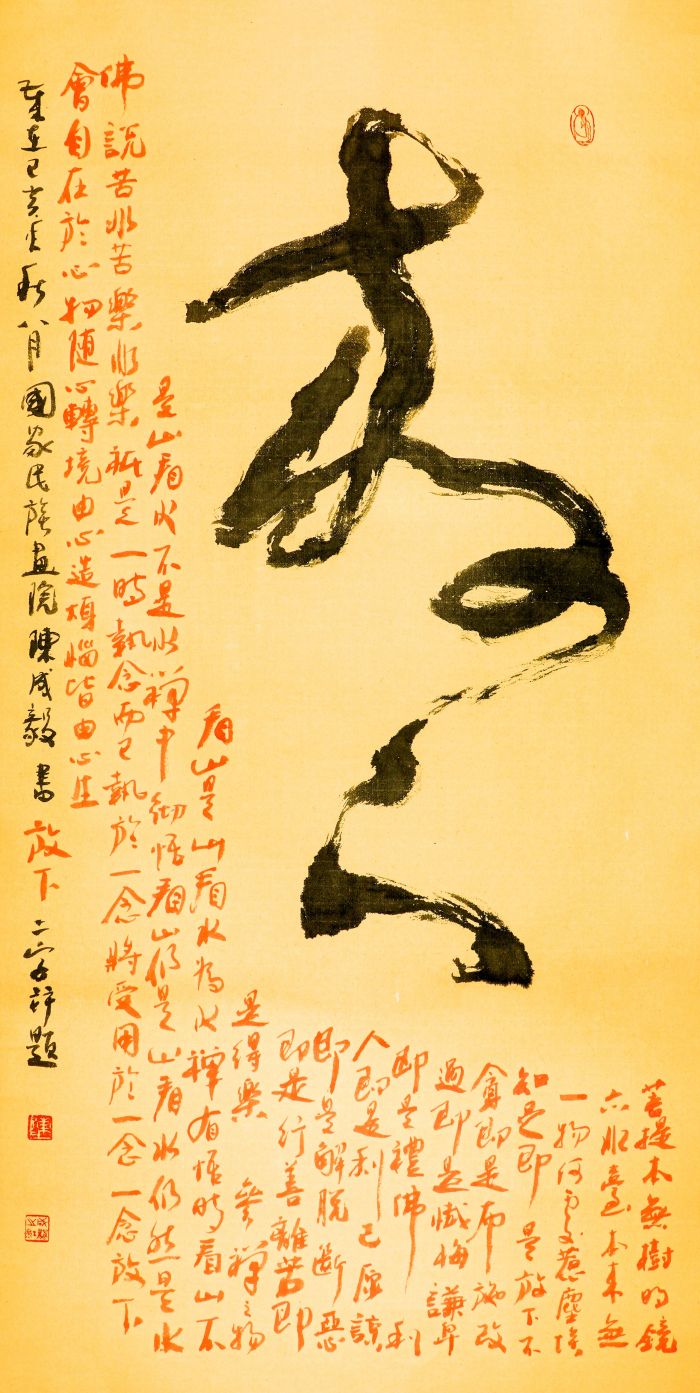 放下
菩提本無樹明鏡
亦非臺本來無
一物何處惹塵埃
知足即是放下不
貪即是布施改
過即是懺悔謙卑
即是禮佛利
人即是利己原諒
即是解脫斷惡
即是行善離苦即
是得樂 參禪之初
看山是山看水為水禪有悟時看山不
是山看水不是水禪中徹悟看山仍是山看水仍然是水
佛説苦非苦樂非樂祇是一時執念而已執於一念將受困於一念一念放下
會自在於心物隨心轉境由心造煩惱皆由心生
歲在己亥年秋八月國家民族畫院陳成毅書放下二字并題